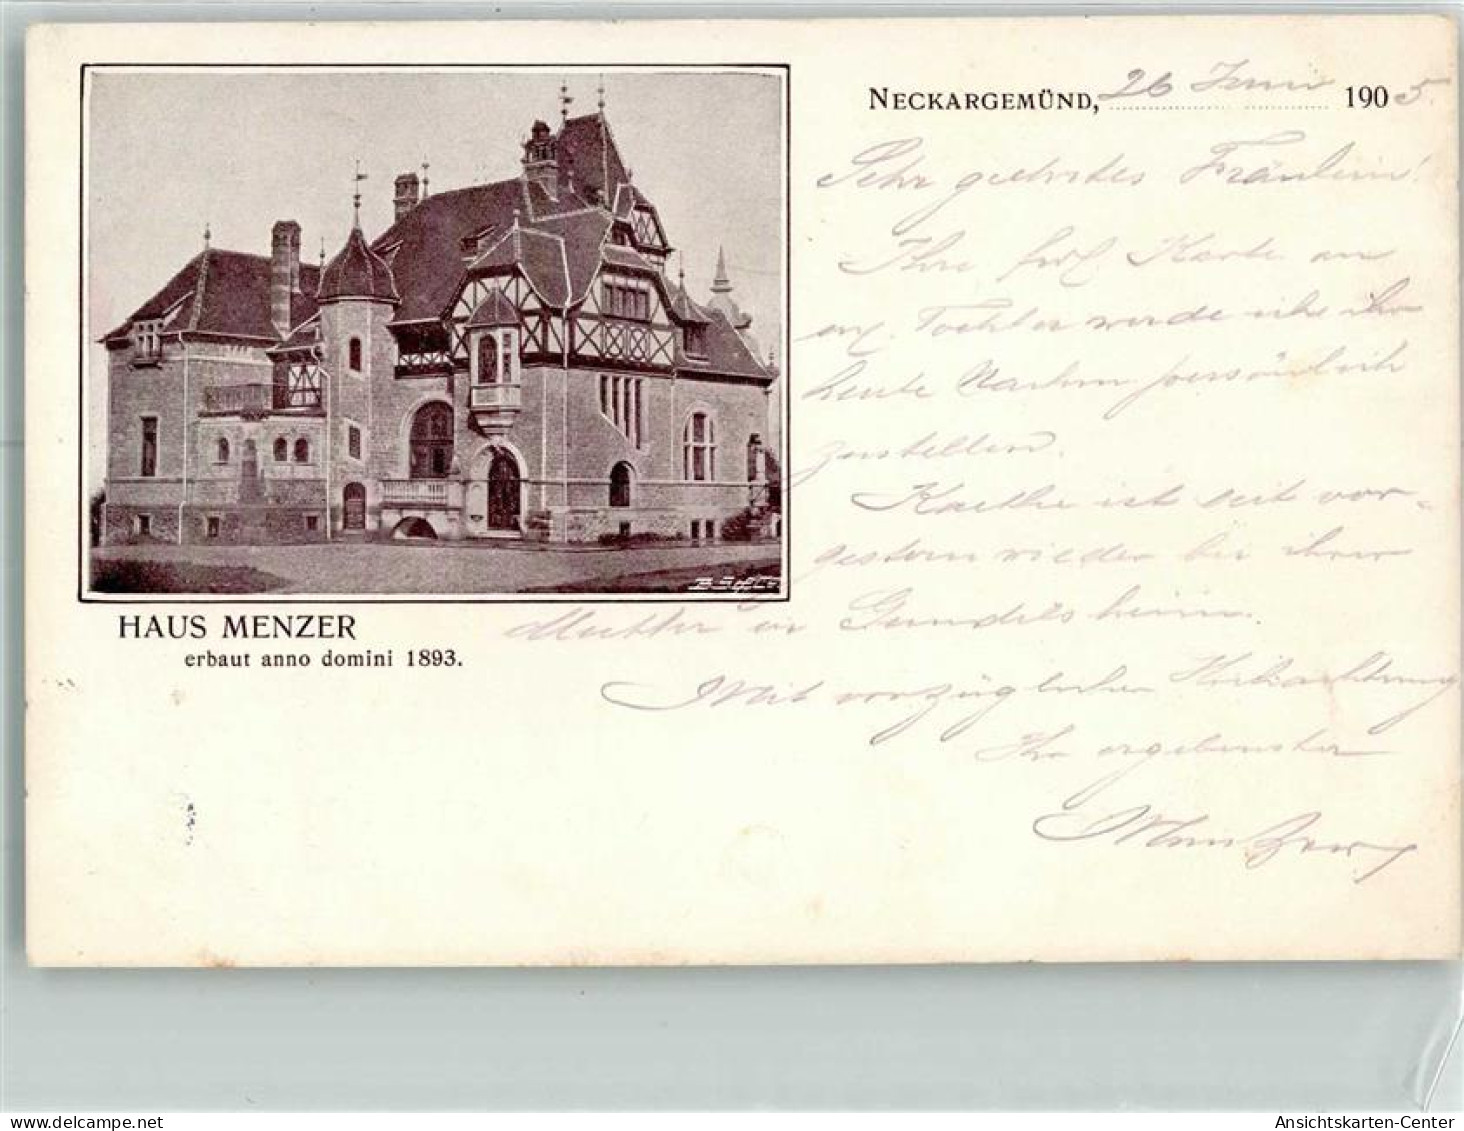 NECKARGEMÜND, 26 Juni 1905.
Sehr geehrtes Fräulein!
Ihre frdl. Karte an
m. Tochter werde ich ihr
heute Nachm. persönlich
zustellen.
Kaethe ist seit vor-
gestern wieder bei ihrer
Mutter in
Mit vorzüglicher Hochachtung
Ihr ergebenster
Menzer
HAUS MENZER
erbaut anno domini 1893.
Ansichtskarten-Center